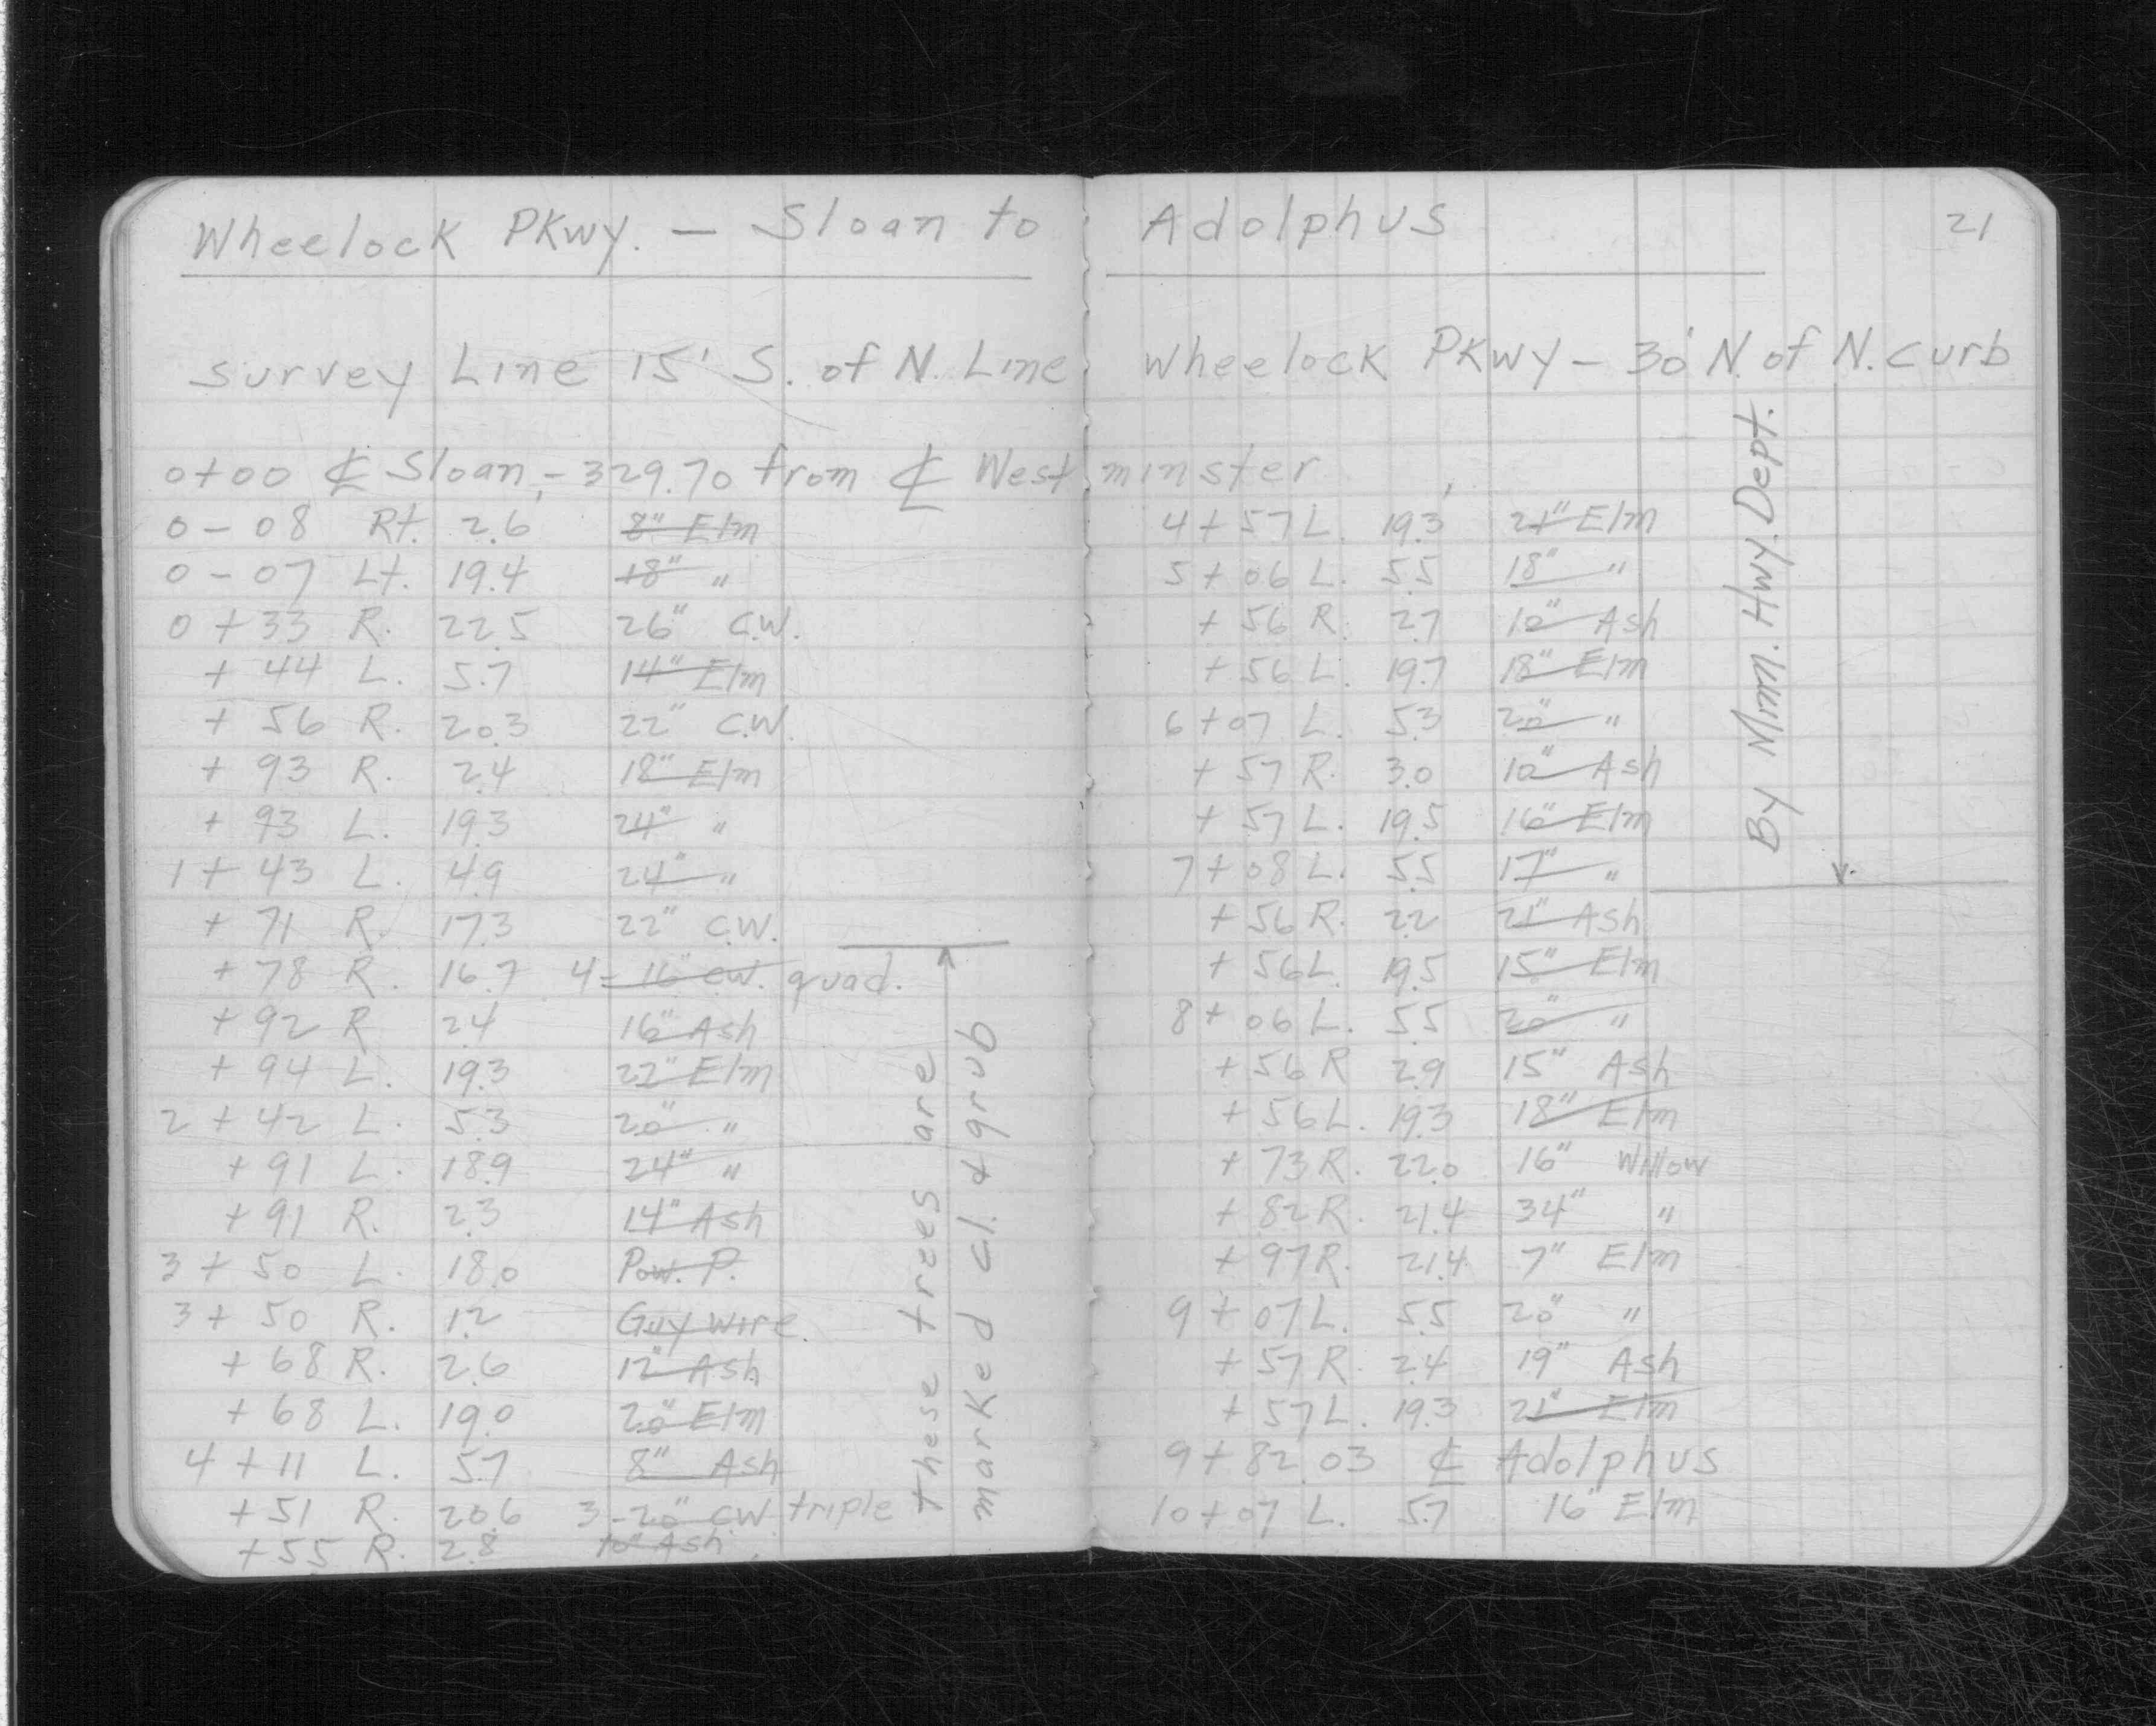 Wheelock PKwy. — Sloan to Adolphus
21
survey Line 15' S. of N. Line Wheelock PKwy – 30' N. of N. curb
0+00 ℄ Sloan, – 329.70 from ℄ Westminster
0 – 08 Rt. 2.6 8" Elm
0 – 07 Lt. 19.4 18" "
0 + 33 R. 22.5 26" C.W.
+ 44 L. 5.7 14" Elm
+ 56 R. 20.3 22" C.W.
+ 93 R. 2.4 18" Elm
+ 93 L. 19.3 24" "
1 + 43 L. 4.9 24" "
+ 71 R. 17.3 22" C.W.
+ 78 R. 16.7 4– 16" CW. quad.
+ 92 R 2.4 16" Ash
+ 94 L. 19.3 22" Elm
2 + 42 L. 5.3 20" "
+ 91 L. 18.9 24" "
+ 91 R. 2.3 14" Ash
3 + 50 L. 18.0 Pow. P.
3 + 50 R. 1.2 Guy wire.
+ 68 R. 2.6 12" Ash
+ 68 L. 19.0 20" Elm
4 + 11 L. 5.7 8" Ash
+ 51 R. 20.6 3–20" CW. triple
+ 55 R. 2.8 10" Ash
These trees are
marked cl. & grub
4 + 57 L. 19.3 21" Elm
5 + 06 L. 5.5 18" "
+ 56 R. 2.7 10" Ash
+ 56 L. 19.7 18" Elm
6 + 07 L. 5.3 20" "
+ 57 R. 3.0 10" Ash
+ 57 L. 19.5 16" Elm
7 + 08 L. 5.5 17" "
+ 56 R. 2.2 21" Ash
+ 56 L. 19.5 15" Elm
8 + 06 L. 5.5 20" "
+ 56 R 2.9 15" Ash
+ 56 L. 19.3 18" Elm
+ 73 R. 22.0 16" Willow
+ 82 R. 21.4 34" "
+ 97 R. 21.4 7" Elm
9 + 07 L. 5.5 20" "
+ 57 R. 2.4 19" Ash
+ 57 L. 19.3 21" Elm
9 + 82.03 ℄ Adolphus
10 + 07 L. 5.7 16" Elm
By Minn. Hwy. Dept.